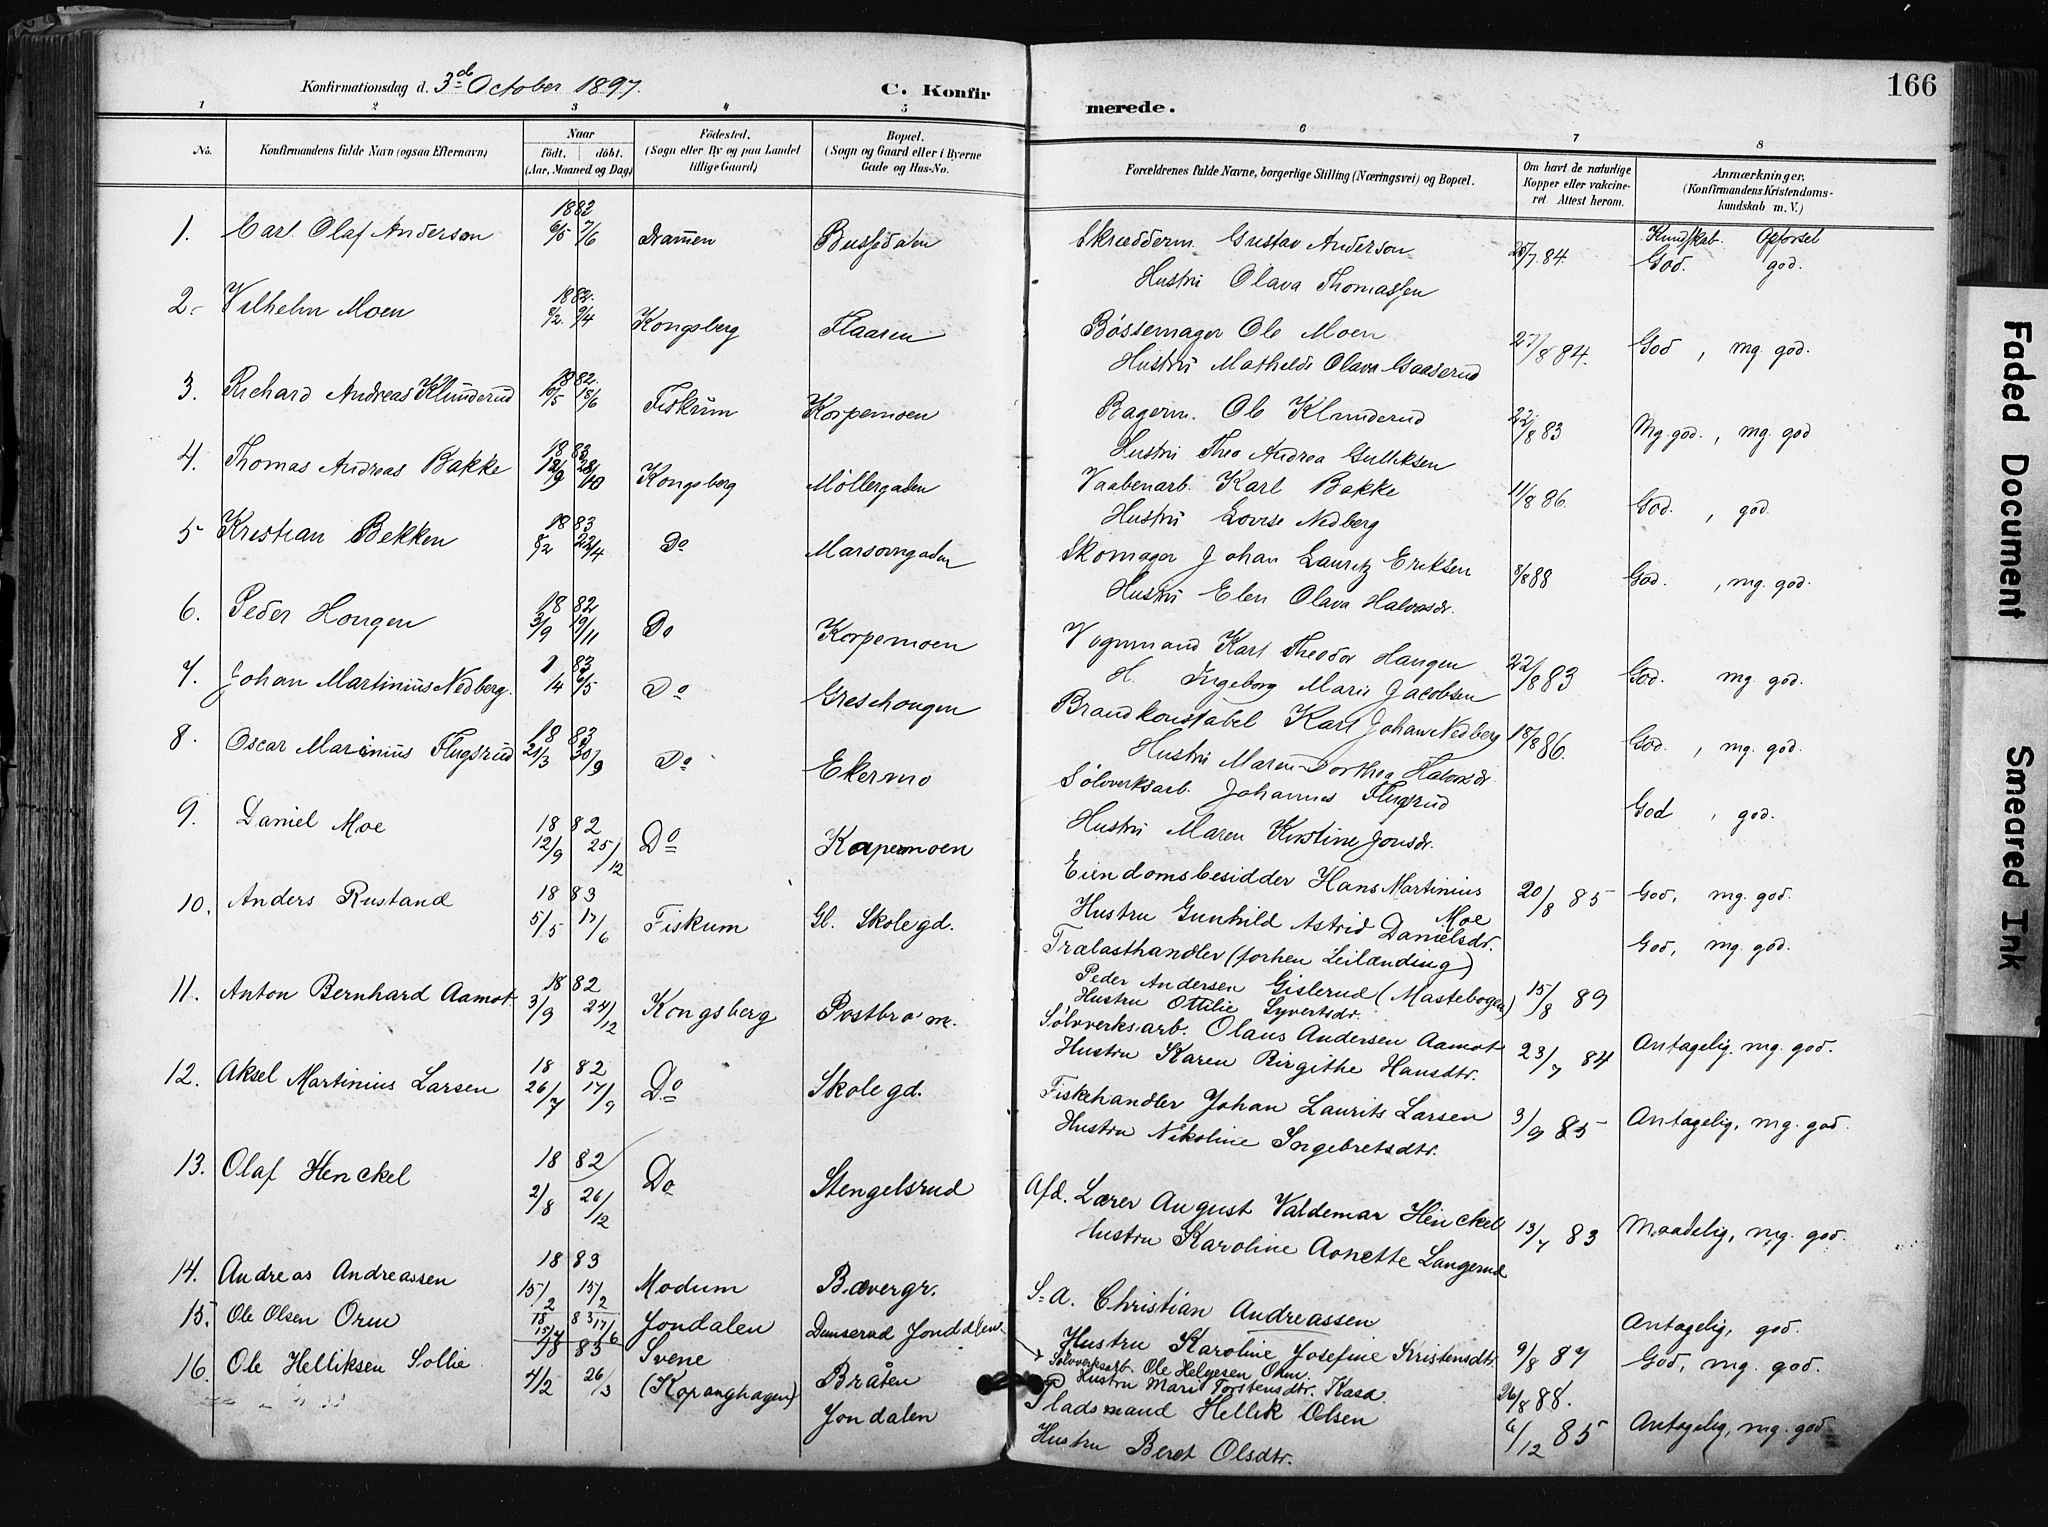 Konfirmationsdag d. 3d October 1897. C. Konfirmerede. 166
1 2 3 4 5 6 7 8
No. Konfirmandens fulde Navn (ogsaa Efternavn) Naar født. døbt. (Aar, Maaned og Dag) Fødested. (Sogn eller By og paa Landet tillige Gaard) Bopæl. (Sogn og Gaard eller i Byerne Gade og Hus-No. Forældrenes fulde Navne, borgerlige Stilling (Næringsvei) og Bopæl. Om havt de naturlige Kopper eller vakcineret. Attest herom. Anmærkninger. (Konfirmandens Kristendomskundskab m. V.)
Kundskab. Opførsel
1. Carl Olaf Anderson 1882 6/5 7/6 Dramen Bussedalen Skræderm. Gustav Anderson 25/7 84. God. god.
Hustru Olava Thomassen
2. Vilhelm Moen 1882. 8/2. 9/4 Kongsberg Flaaren Bøssemager Ole Moen 27/8 84. God, mg. god.
Hustru Mathilde Olava Gaaserud
3. Richard Andreas Klunderud 1882. 10/5 18/6 Fiskum Korpemoen Bagerm. Ole Klunderud 22/8 83 Mg. god., mg. god
Hustru Thea Andrea Gulliksen
4. Thomas Andreas Bakke 1883 12/9 28/10 Kongsberg Møllergaden Vaabenarb. Karl Bakke 11/8 86. God., god.
Hustru Lovise Nedberg
5 Kristian Bekken 1883 8/2 22/4 Do Marsovngaden Skomager Johan Lauritz Eriksen 8/8 88 God., mg. god.
Hustru Elen Olava Halvorsdr.
6. Peder Hongen 1882 3/9 19/11 Do Korpemoen Vognmand Karl Theodor Haugen 22/8 83 God. mg. god.
H. Ingeborg Marie Jacobsen
7. Johan Martinius Nedberg. 83 14 6/5 Do Greshougen Brandkonstabel Karl Johan Nedberg 18/8 86. God., mg. god.
Hustru Maren Dorthea Halvorsdr.
8. Oscar Marinius Flugsrud 1883 21/3 30/9 Do Ekermo Sølvverksarb. Johannes Flugsrud God, god.
Hustru Maren Kirstine Jonsdr.
9. Daniel Moe 1882 12/9 25/12 Do Korpemoen Eiendomsbesidder Hans Martinius Moe 20/8 85 God, mg. god.
Hustru Gunhild Astrid Danielsdr.
10. Anders Rustand 1883 5/5 17/6 Fiskum Gl. Skolegd. Trælasthandler (forhen Leilænding) God, mg. god.
Peder Andersen Gislerud (Mastebogen) 15/8 89
Hustru Ottilie Syvertsdr.
11. Anton Bernhard Aamot 1882 3/9 24/12 Kongsberg Postbrom. Sølvverksarb. Olaus Andersen Aamot 23/7 84 Antagelig. mg. god.
Hustru Karen Birgithe Hansdtr.
12. Aksel Martinius Larsen 1882 26/7 17/9 Do Skolegd. Fiskehandler Johan Laurits Larsen 3/9 85 Antagelig, mg. god.
Hustru Nikoline Ingebretsdtr.
13. Olaf Henckel 1882 2/8 26/12 Do Stengelsrud Afd. Lærer August Valdemar Henckel 13/7 83 Maadelig, mg. god.
Hustru Karoline Agnette Langerud
14. Andreas Andreassen 1883 15/2 15/2 Modum Bævergr. S. A. Christian Andreassen Antagelig, god.
Hustru Karoline Josefine Kristensdtr 9/8 87 God, mg. god.
15. Ole Olsen Orm 1883 17/6 Jondalen Damserud Jonddalen Sølvverksarb. Ole Helgesen Orm. 26/8 88.
Hustru Mari Torstensdtr. Kasa
16. Ole Helliksen Sollie 1883 4/2 26/3 Svene (Kopanghagen) Bråten Jondalen Pladsmand Hellik Olsen 6/12 85 Antagelig, mg. god.
Hustru Berot Olsdtr.
Faded Document
Smeared Ink